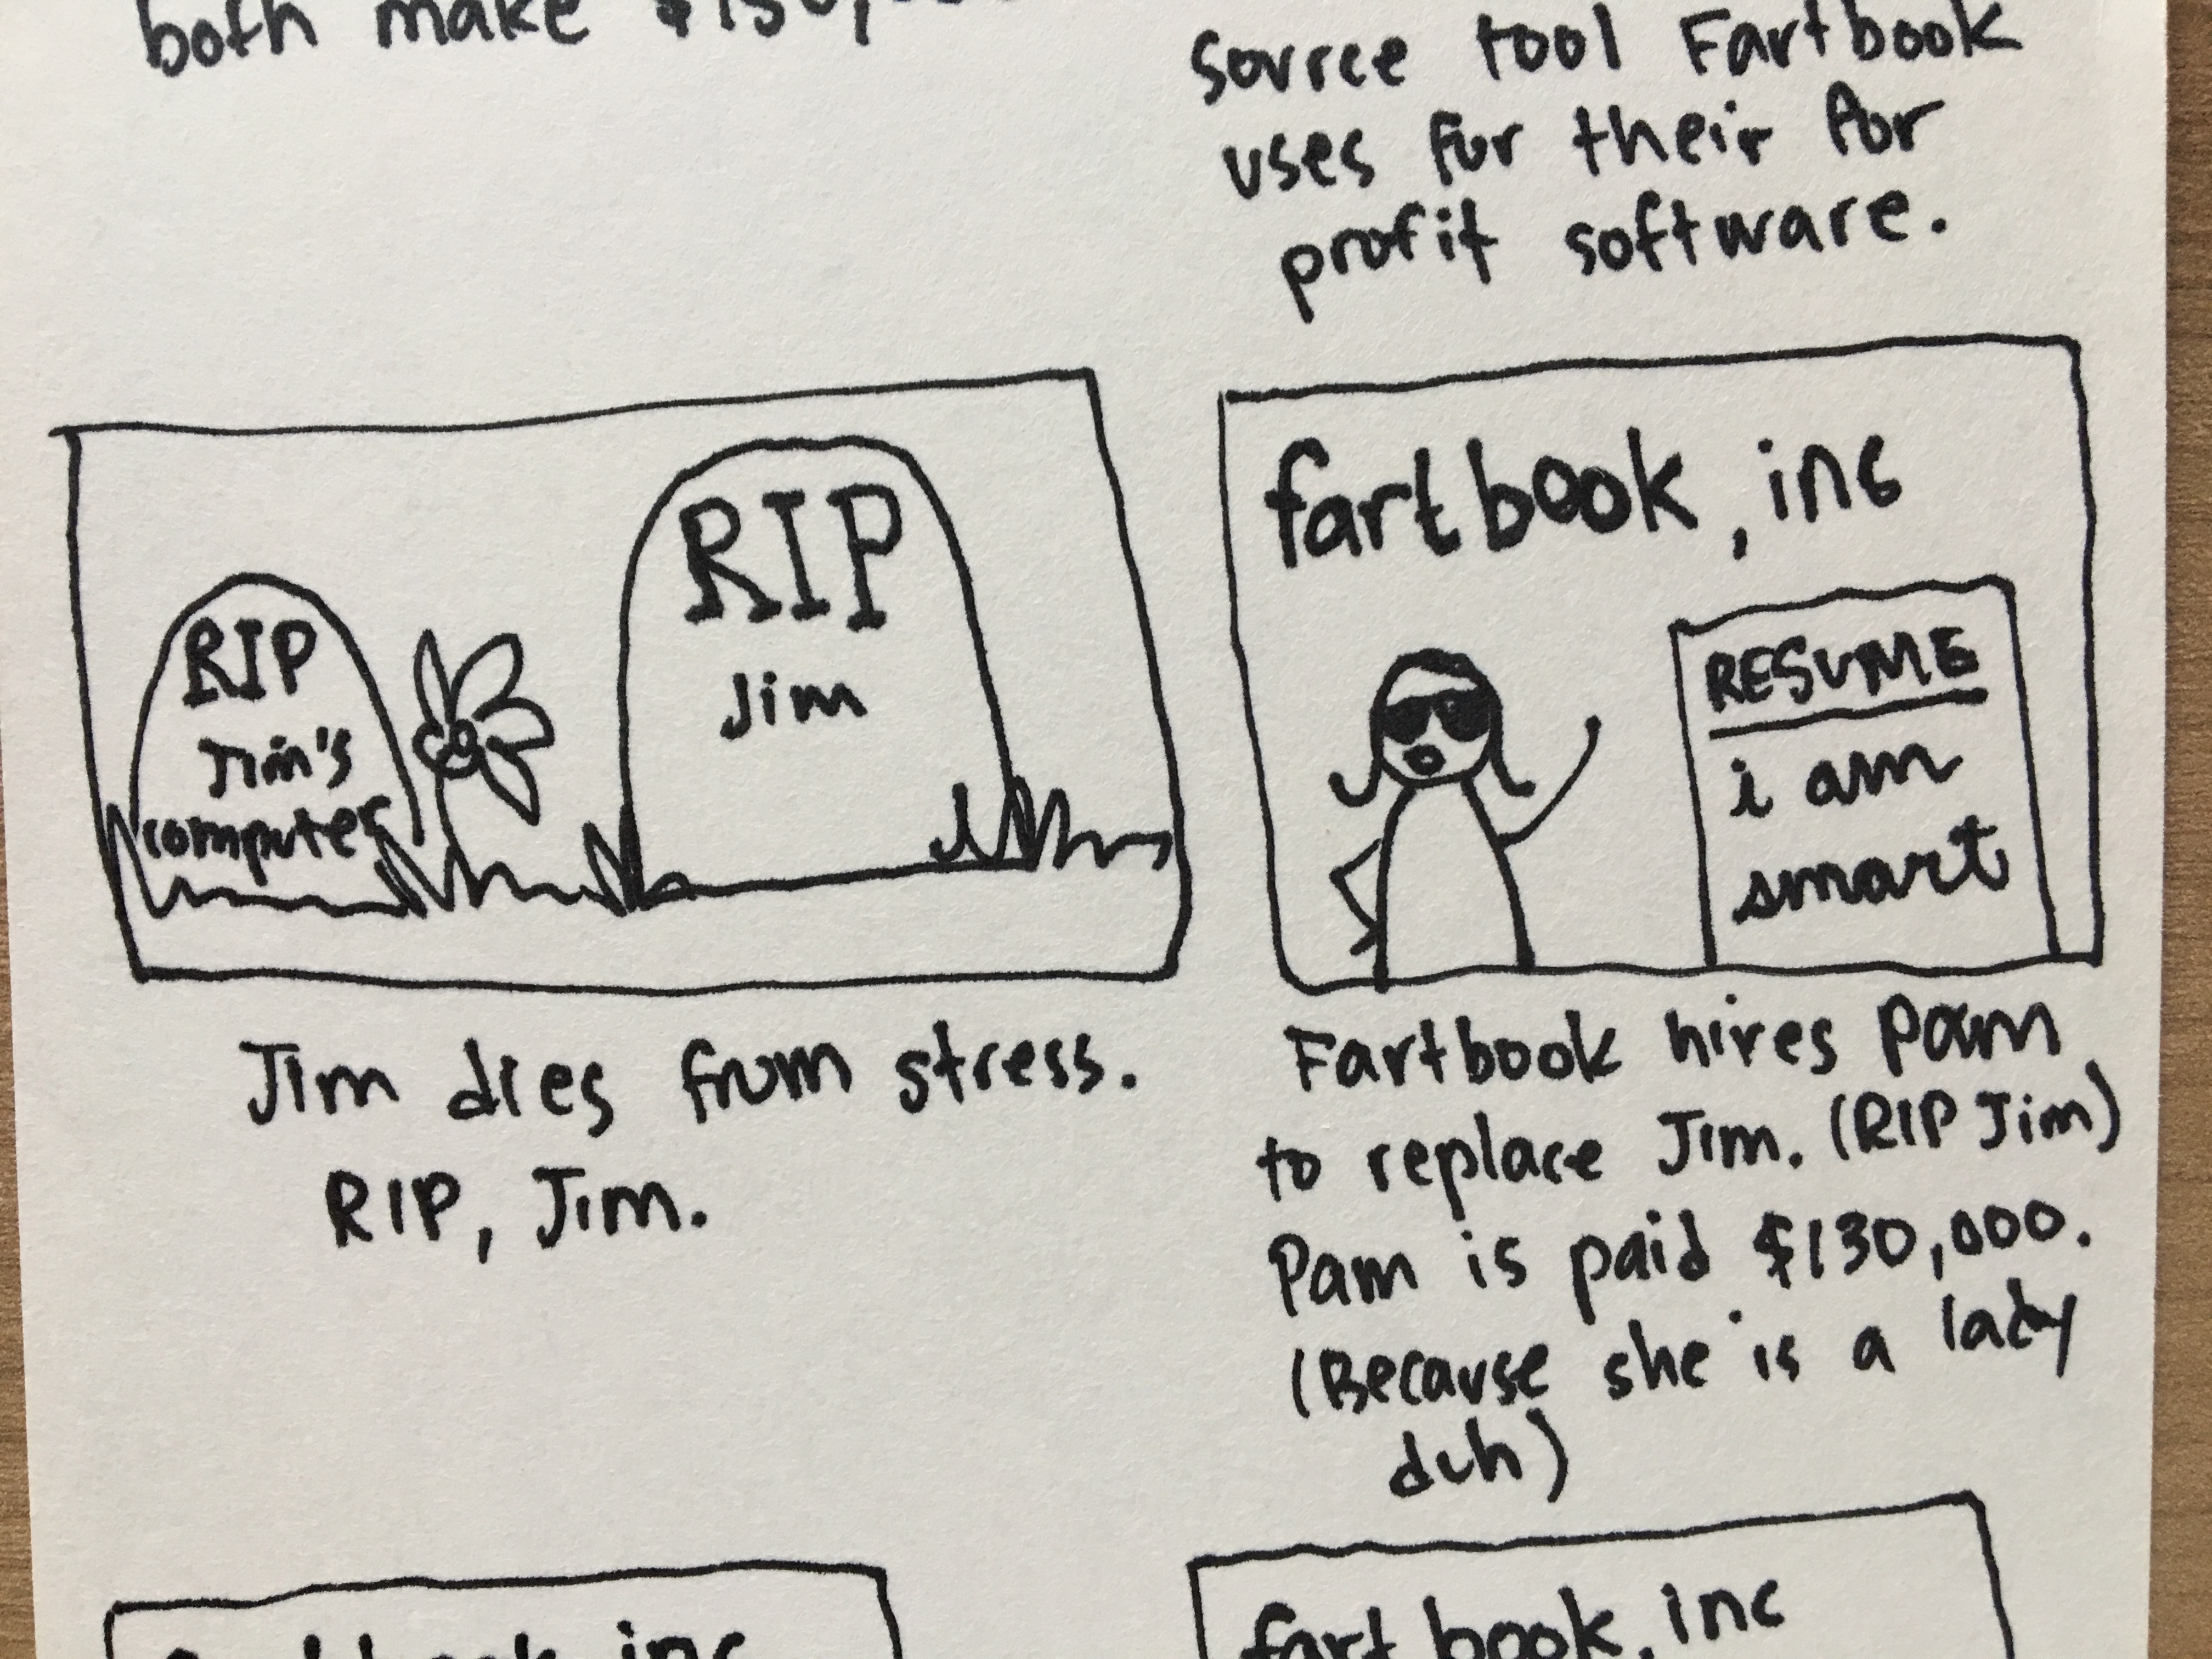 both make
source tool Fartbook
uses for their for
profit software.
RIP
Jim's
computer
RIP
Jim
Jim dies from stress.
RIP, Jim.
fartbook, inc
RESUME
i am
smart
Fartbook hires pam
to replace Jim. (RIP Jim)
pam is paid $130,000.
(Because she is a lady
duh)
inc
fart book, inc